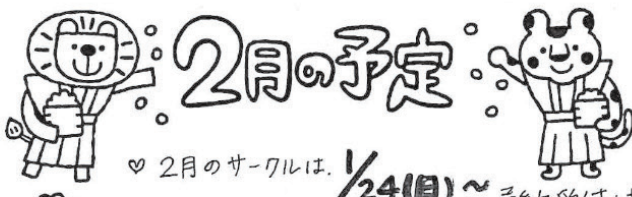 2月の予定
♡ 2月のサークルは、1/24(月)~